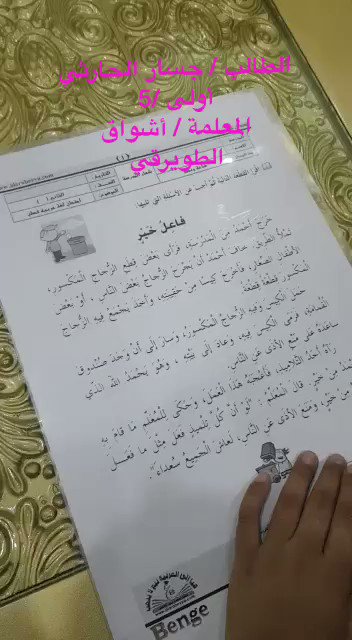 الطالب / جسار الحارثي
أولى /5
المعلمة / أشواق
الطويرقي
(١)
اقرأ القطعة التالية ثم أجب عن الأسئلة التي تليها:
فاعل خير
خرج أحمد من المدرسة، فرأى بعض قطع الزجاج المكسور،
تملأ الطريق. خاف أحمد أن يجرح الزجاج بعض الناس، أو بعض
الأطفال الصغار، فأخرج كيسا من حقيبته، وأخذ يجمع فيه الزجاج
المكسور قطعة قطعة.
حمل الكيس وفيه الزجاج المكسور، وسار إلى أن وجد صندوق
القمامة، فرمى الكيس فيه، وعاد إلى بيته، وهو يحمد الله الذي
ساعده على منع الأذى عن الناس.
رآه أحد التلاميذ، فأعجبه هذا العمل، وحكى للمعلم ما قام به
من خير. قال المعلم: "لو أن كل تلميذ فعل مثل ما فعل
من خير، ومنع الأذى عن الناس، لعاش الجميع سعداء".
Benge